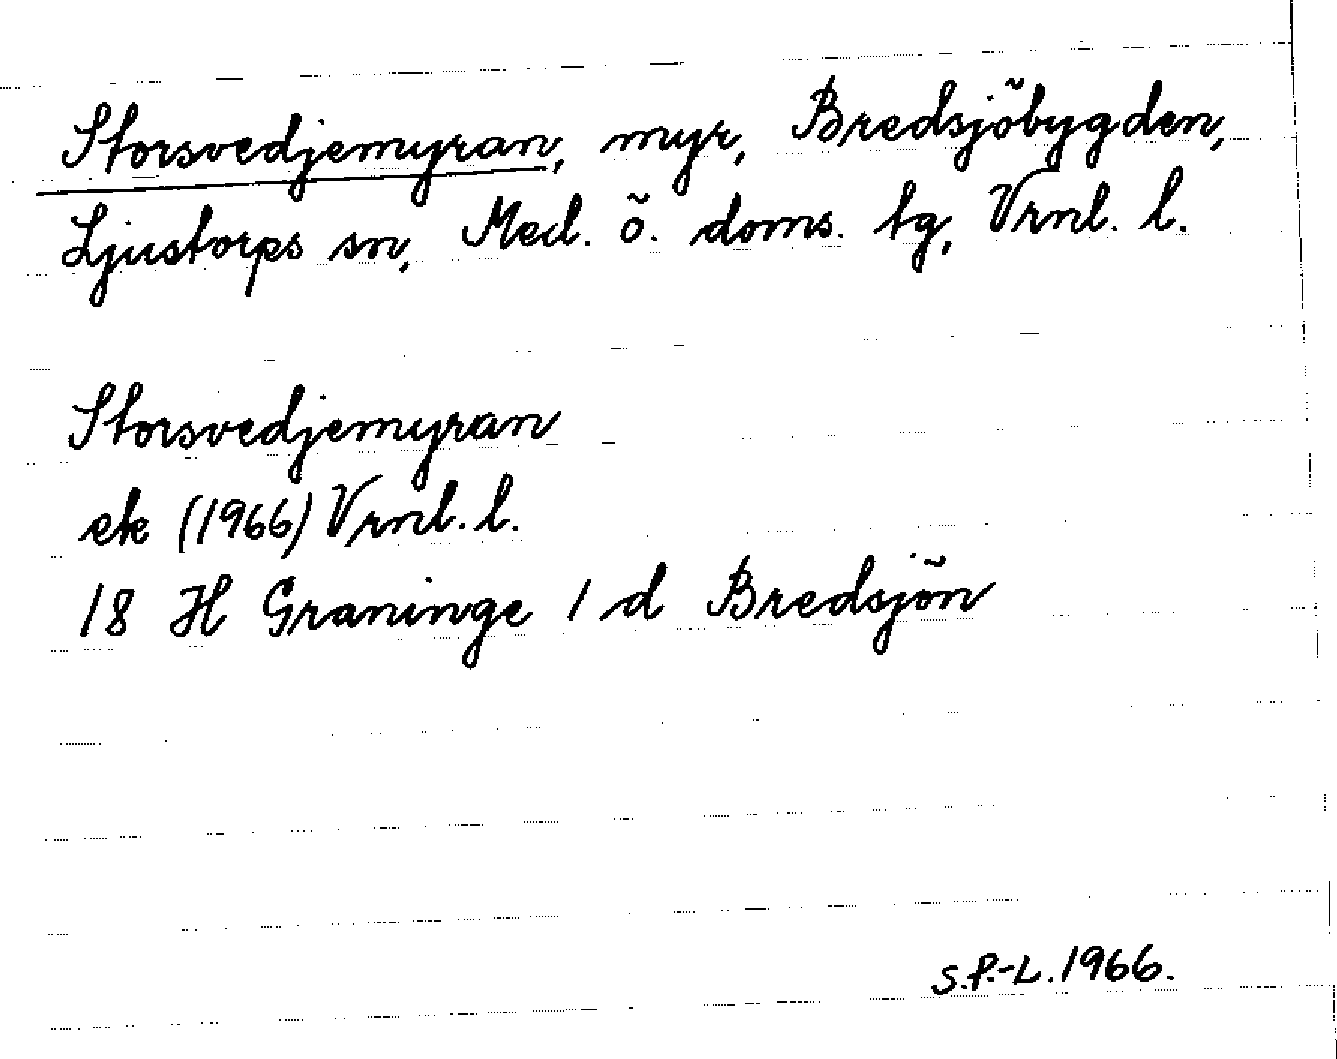 Storsvedjemyran, myr, Bredsjöbygden,
Ljustorps sn, Med. ö. doms. tg, Vrnl. l.
Storsvedjemyran
ek (1966) Vrnl. l.
18 H Graninge 1 d Bredsjön
S.P.-L. 1966.